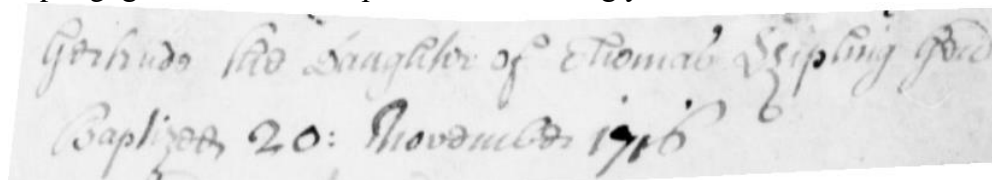 Gertrude the Daughter of Thomas Kipling Gent
Baptized 20: November 1716